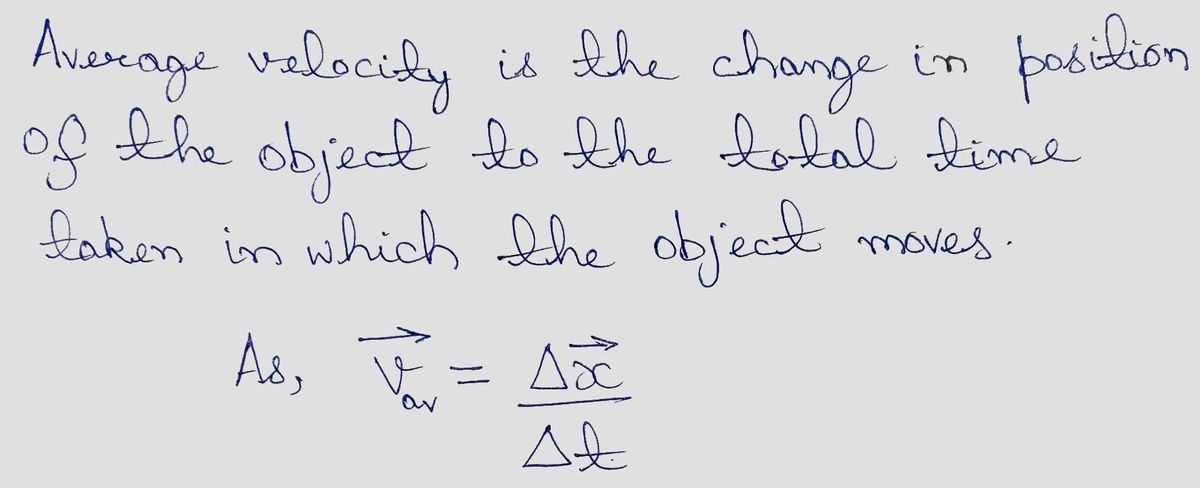 Average velocity is the change in position
of the object to the total time
taken in which the object moves.
As, v⃗av = Δx⃗
Δt